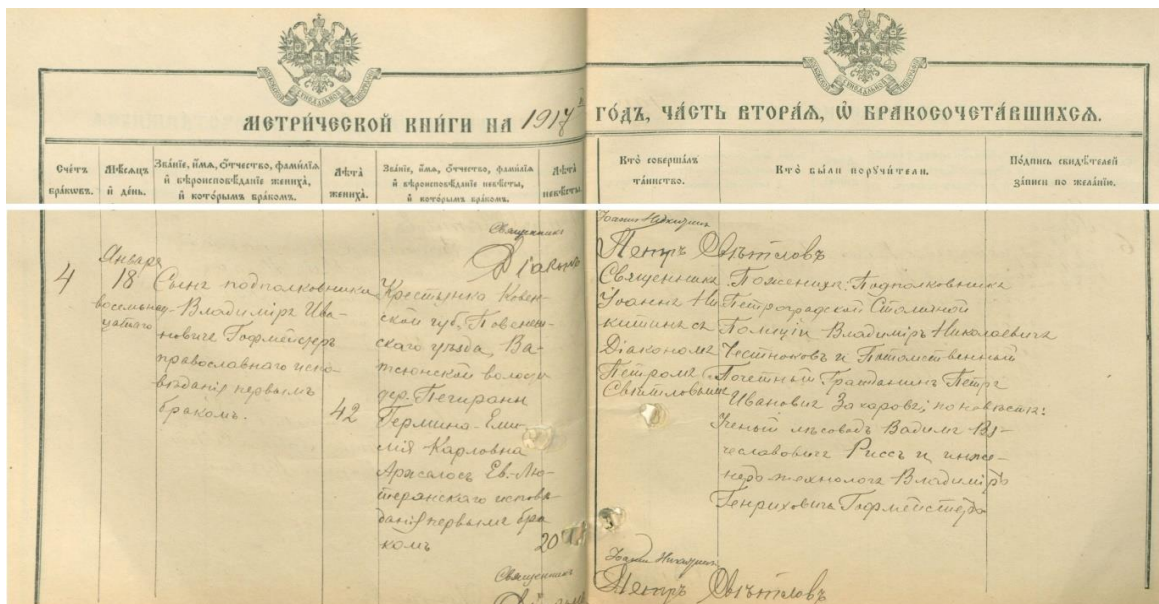 МЕТРИ́ЧЕСКОЙ КНИ́ГИ НА 1917й ГО́ДЪ, ЧА́СТЬ ВТОРА́Я, Ѿ БРАКОСОЧЕТА́ВШИХСЯ.
Сче́тъ
бра́ковъ.
Мѣ́сяцъ
и҆ де́нь.
Зва́нїе, и҆́мя, ѻ҆́тчество, фами́лїя
и҆ вѣроисповѣ́данїе жениха̀,
и҆ кото́рымъ бра́комъ.
Лѣ́та
жениха̀.
Зва́нїе, и҆́мя, ѻ҆́тчество, фами́лїя
и҆ вѣроисповѣ́данїе невѣ́сты,
и҆ кото́рымъ бра́комъ.
Лѣ́та
невѣ́сты
Кто̀ соверша́лъ
та́инство.
Кто̀ бы́ли поручи́тели.
По́дпись свидѣ́телей
за́писи по жела́нїю.
Священникъ
Іоаннъ Никитинъ
Діаконъ
Петръ Свѣтловъ
4
Января
18
восемьнад-
цатаго
Сынъ подполковника
Владиміръ Ива-
новичъ Гофмейстеръ
православнаго испо-
вѣданія первымъ
бракомъ.
42
Крестьянка Ковен-
ской губ.
скаго уѣзда, Ва-
волости
дер.
Гермина-Еми-
лія Карловна
Ев.-Лю-
теранскаго исповѣ-
данія первымъ бра-
комъ
20
Священникъ
Іоаннъ Ни-
китинъ съ
Діакономъ
Петромъ
Свѣтловымъ
По женихѣ: Подполковникъ
Петроградской Столичной
Полиціи Владиміръ Николаевичъ
Честноковъ и Потомственный
Почетный Гражданинъ Петръ
Ивановичъ Захаровъ; по невѣстѣ:
Ученый лѣсоводъ Вадимъ Вя-
чеславовичъ Риссъ и инже-
неръ-технологъ Владиміръ
Генриховичъ Гофмейстеръ
Священникъ
Іоаннъ Никитинъ
Петръ Свѣтловъ